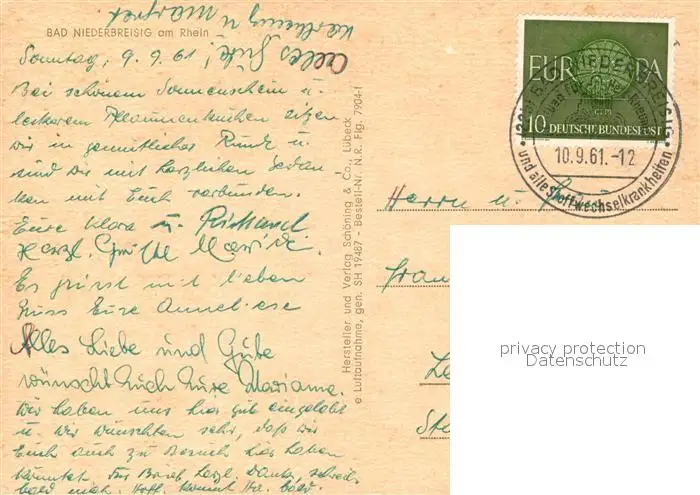 Karlheinz u. Margret
Alles Gute!
BAD NIEDERBREISIG am Rhein
Sonntag, 9. 9. 61
Bei schönem Sonnenschein u.
leckerem Pflaumenkuchen sitzen
wir in gemütlicher Runde u.
sind Die mit herzlichen Gedan-
ken mit Euch verbunden.
Eure Klara u. Richard
Herzl. Grüße
Es grüsst mit lieben
Gruss Eure Anneliese
Alles Liebe und Gute
wünscht Euch Eure Marianne.
Wir haben uns hier gut eingelebt
u. wir wünschten sehr, daß wir
Euch auch zu Besuch hier haben
könnten. Für Brief herzl. Dank, schreib
bald mich. Hoff. kommt Ihr bald.
Hersteller und Verlag Schöning & Co., Lübeck
e Luftaufnahme, gen. SH 19487 - Bestell-Nr. N.R. Flg. 7904-f
EUROPA
10 DEUTSCHE BUNDESPOST
BAD NIEDERBREISIG
10.9.61.-12
und alle Stoffwechselkrankheiten
Herrn u.
privacy protection
Datenschutz